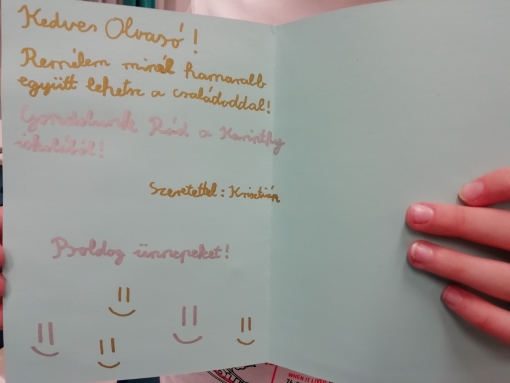 Kedves Olvasó!
Remélem minél hamarabb
együtt lehetsz a családoddal!
Gondolunk Rád a Karinthy
iskolából!
Szeretettel: Krisztián
Boldog ünnepeket!